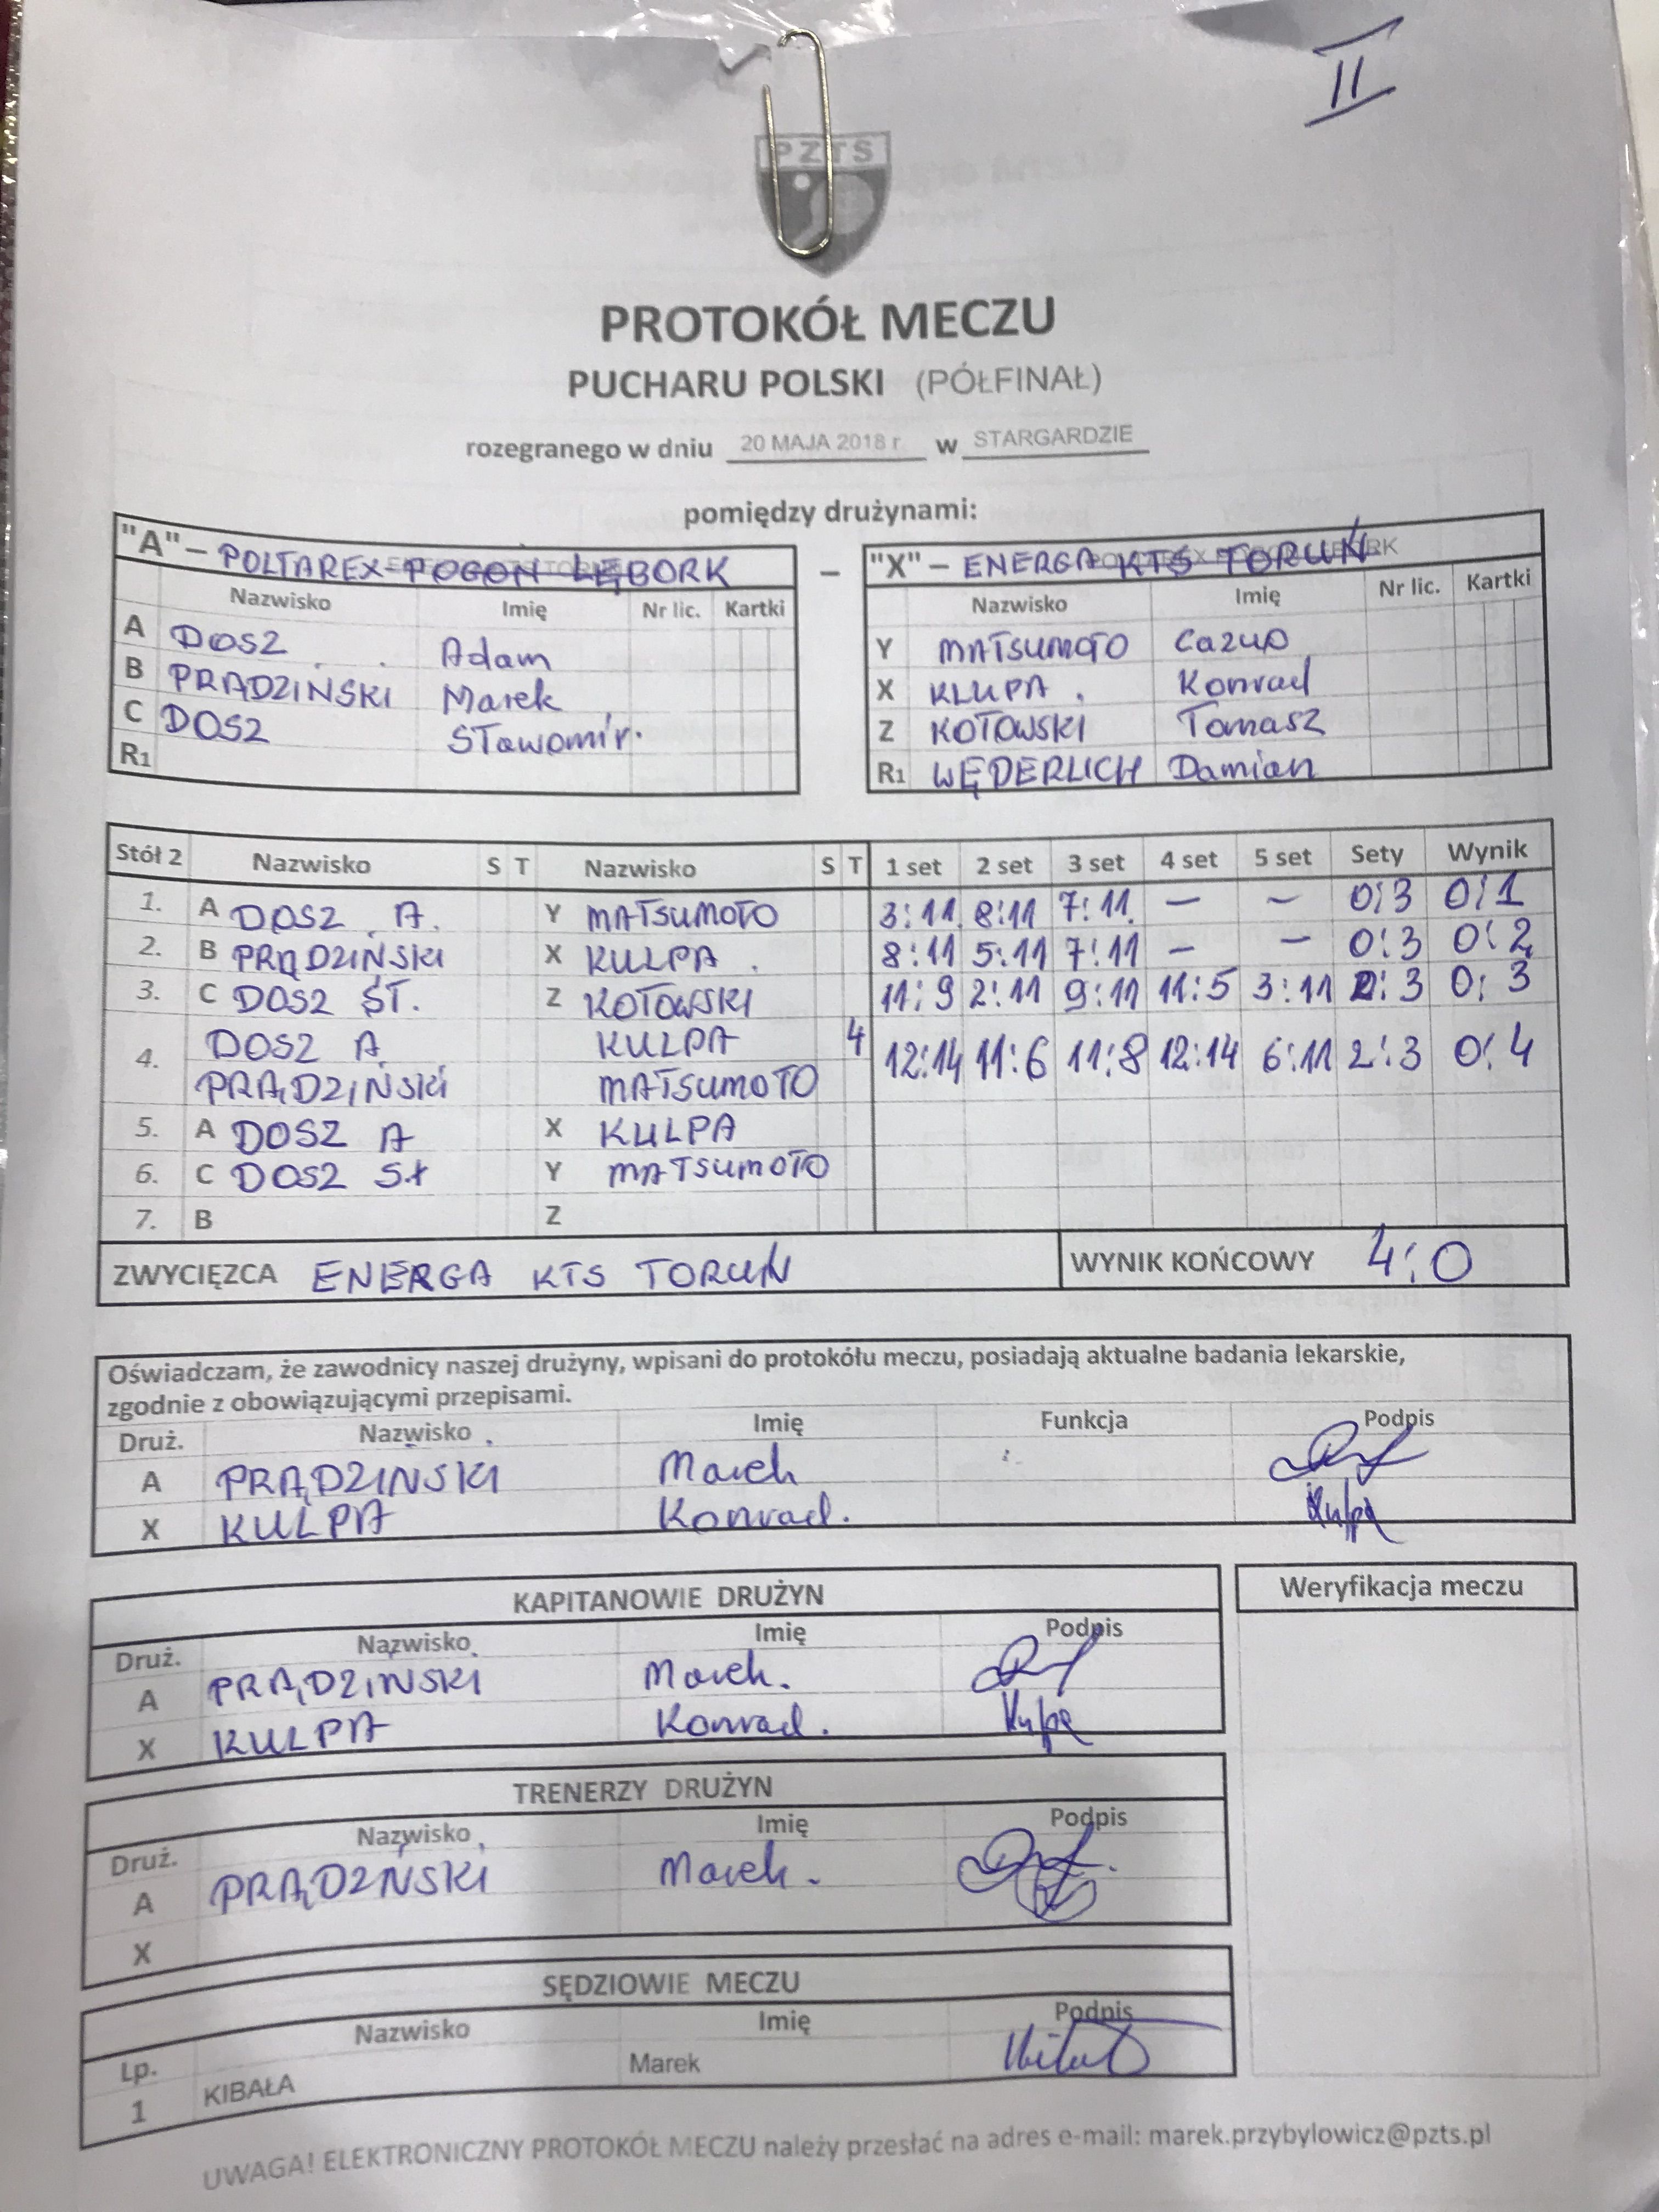 II
PZTS
PROTOKÓŁ MECZU
PUCHARU POLSKI (PÓŁFINAŁ)
rozegranego w dniu 20 MAJA 2018 r. w STARGARDZIE
pomiędzy drużynami:
"A" – POLTAREX POGOŃ LĘBORK – "X" – ENERGA KTS TORUŃ
Nazwisko Imię Nr lic. Kartki Nazwisko Imię Nr lic. Kartki
A DOSZ Adam Y MATSUMOTO Cazuo
B PRĄDZIŃSKI Marek X KLUPA Konrad
C DOSZ Sławomir. Z KOTOWSKI Tomasz
R1 R1 WĘDERLICH Damian
Stół 2 Nazwisko S T Nazwisko S T 1 set 2 set 3 set 4 set 5 set Sety Wynik
1. A DOSZ A. Y MATSUMOTO 3:11 8:11 7:11 – – 0:3 0:1
2. B PRĄDZIŃSKI X KULPA 8:11 5:11 7:11 – – 0:3 0:2
3. C DOSZ SŁ. Z KOTOWSKI 11:9 2:11 9:11 11:5 3:11 2:3 0:3
4. DOSZ A KULPA 4 12:14 11:6 11:8 12:14 6:11 2:3 0:4
PRĄDZIŃSKI MATSUMOTO
5. A DOSZ A X KULPA
6. C DOSZ Sł Y MATSUMOTO
7. B Z
ZWYCIĘZCA ENERGA KTS TORUŃ WYNIK KOŃCOWY 4:0
Oświadczam, że zawodnicy naszej drużyny, wpisani do protokółu meczu, posiadają aktualne badania lekarskie,
zgodnie z obowiązującymi przepisami.
Druż. Nazwisko Imię Funkcja Podpis
A PRĄDZIŃSKI Marek
X KULPA Konrad. Kulpa
KAPITANOWIE DRUŻYN Weryfikacja meczu
Druż. Nazwisko Imię Podpis
A PRĄDZIŃSKI Marek.
X KULPA Konrad. Kulpa
TRENERZY DRUŻYN
Druż. Nazwisko Imię Podpis
A PRĄDZŃSKI Marek.
X
SĘDZIOWIE MECZU
Lp. Nazwisko Imię Podpis
1 KIBAŁA Marek
UWAGA! ELEKTRONICZNY PROTOKÓŁ MECZU należy przesłać na adres e-mail: marek.przybylowicz@pzts.pl